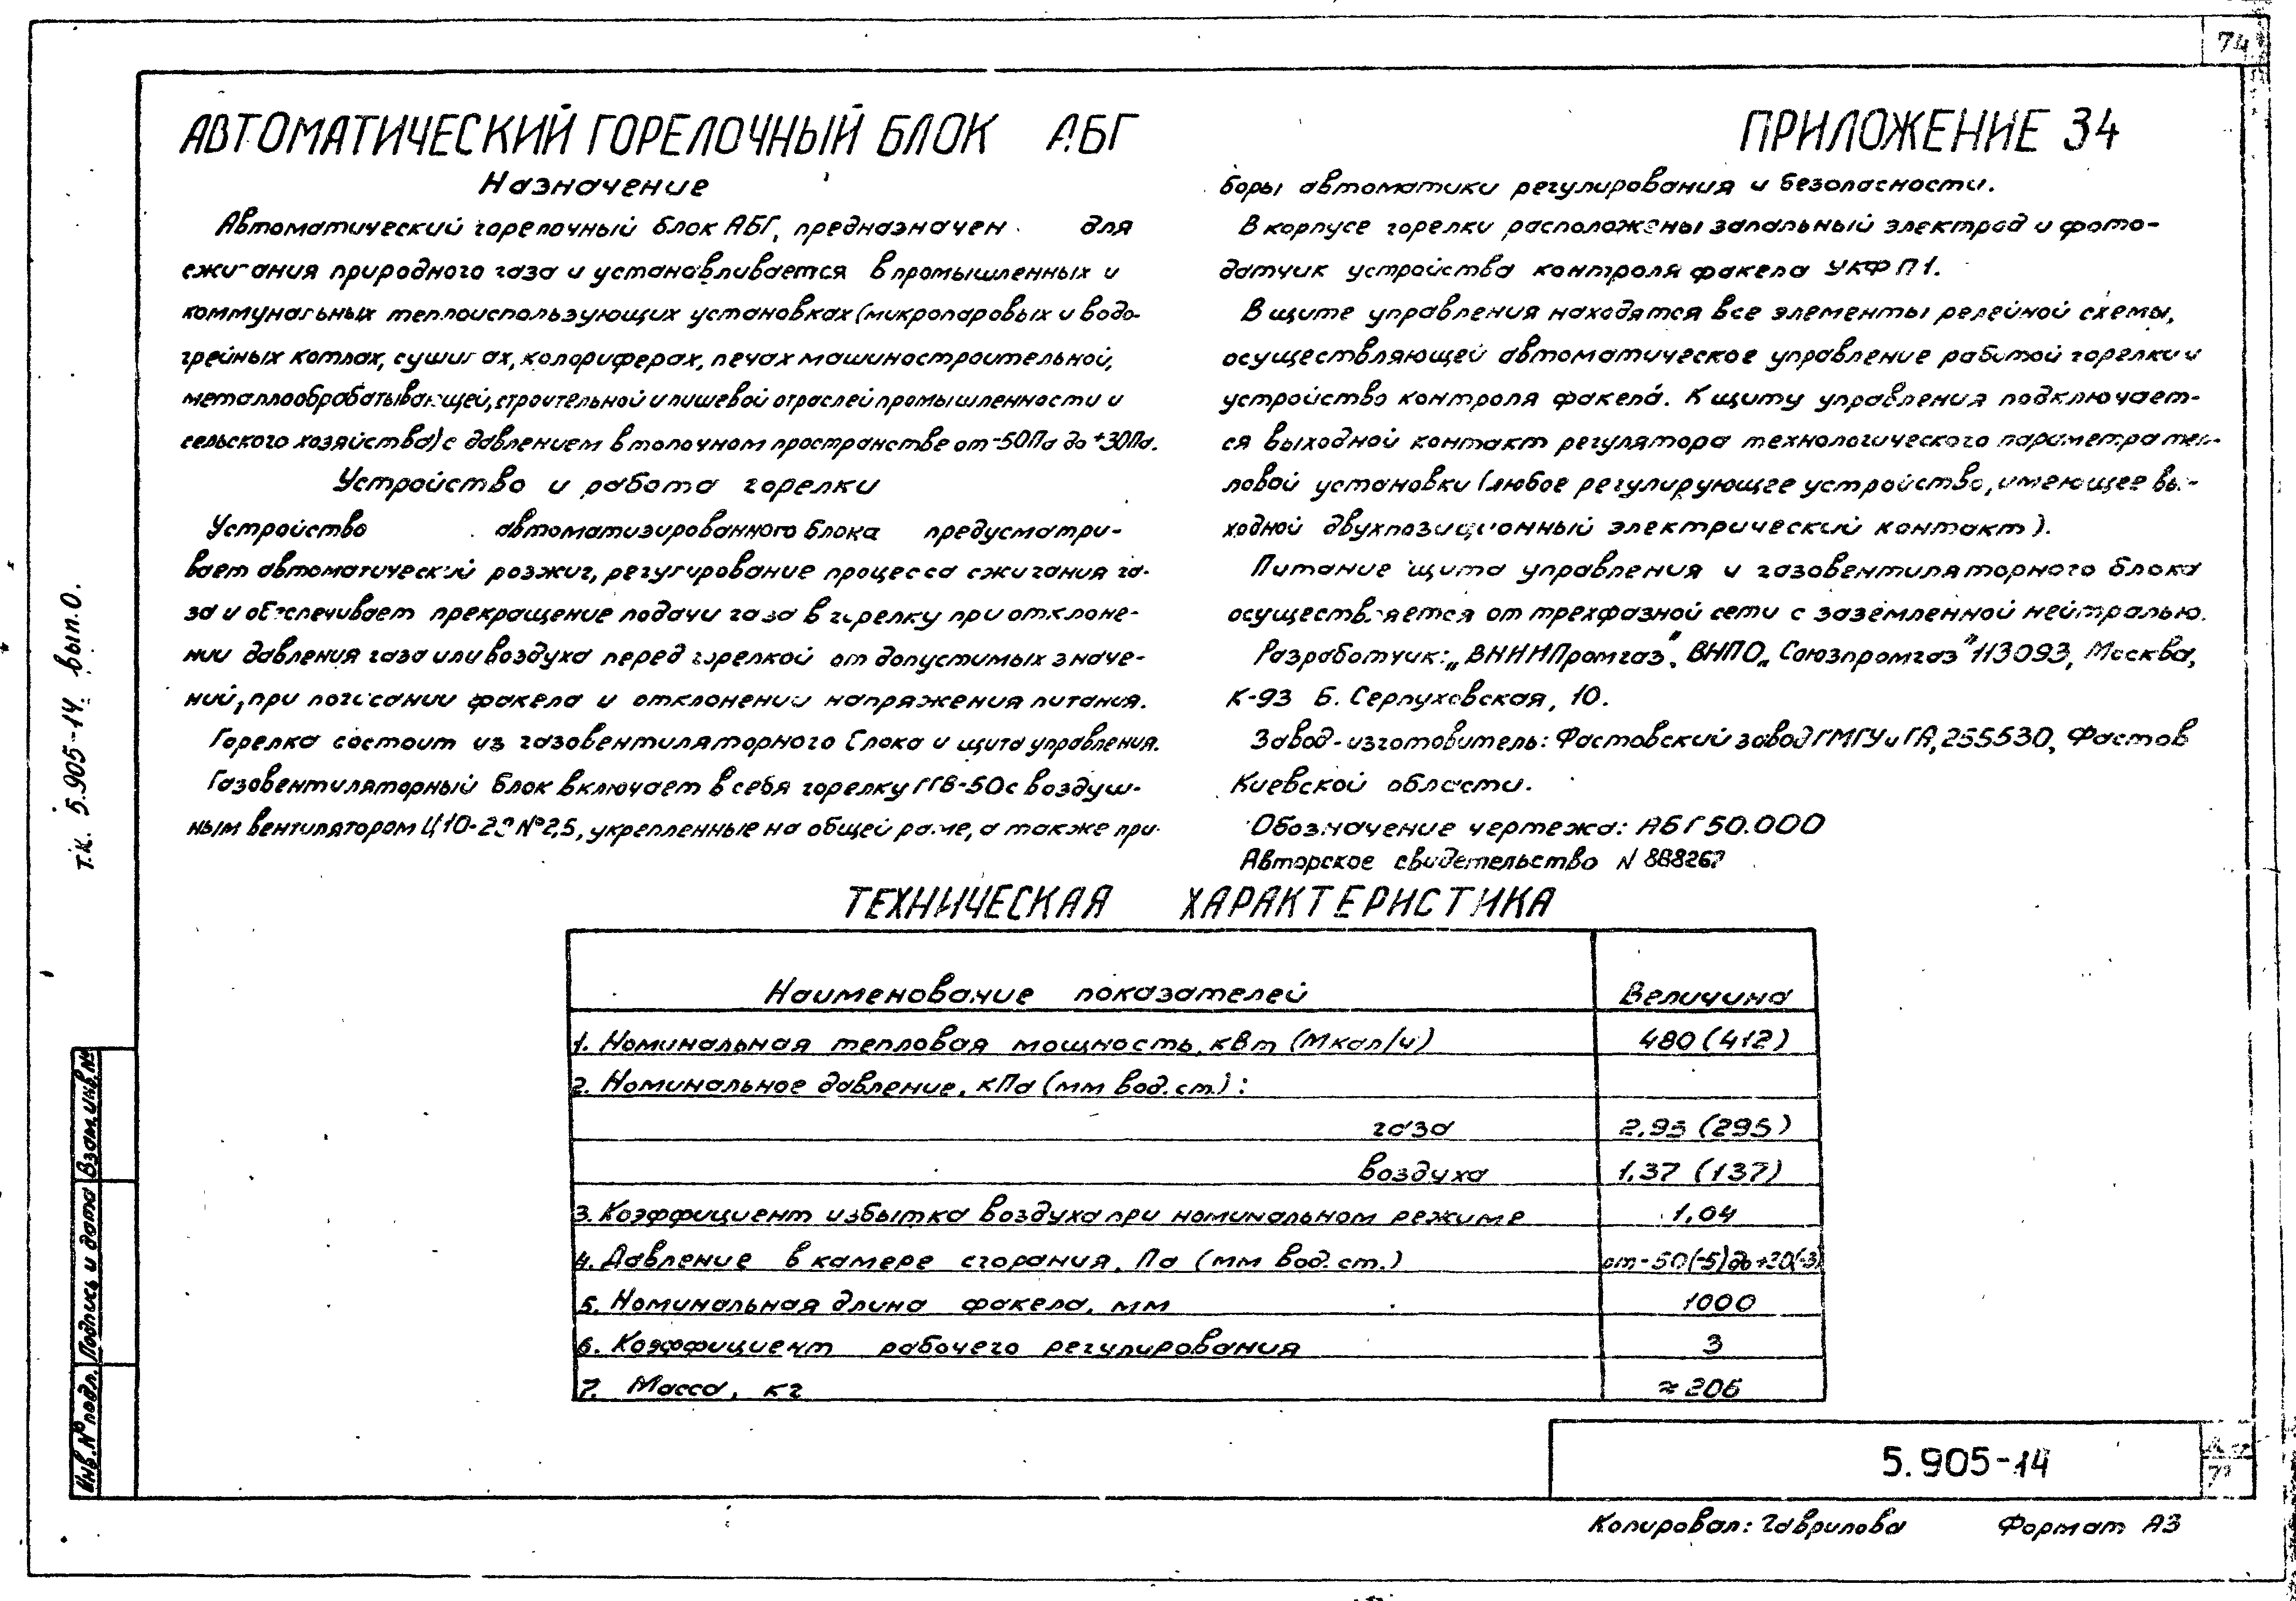 74
АВТОМАТИЧЕСКИЙ ГОРЕЛОЧНЫЙ БЛОК АБГ
ПРИЛОЖЕНИЕ 34
Назначение
Автоматический горелочный блок АБГ, предназначен для
сжигания природного газа и устанавливается в промышленных и
коммунальных теплоиспользующих установках (микропаровых и водо-
грейных котлах, сушилах, колориферах, печах машиностроительной,
металлообрабатывающей, строительной и пищевой отраслей промышленности и
сельского хозяйства) с давлением в топочном пространстве от -50Па до +30Па.
Устройство и работа горелки
Устройство автоматизированного блока предусматри-
вает автоматический розжиг, регулирование процесса сжигания га-
за и обеспечивает прекращение подачи газа в горелку при отклоне-
нии давления газа или воздуха перед горелкой от допустимых значе-
ний, при погасании факела и отклонении напряжения питания.
Горелка состоит из газовентиляторного блока и щита управления.
Газовентиляторный блок включает в себя горелку ГГВ-50 с воздуш-
ным вентилятором Ц10-28 №2,5, укрепленные на общей раме, а также при-
боры автоматики регулирования и безопасности.
В корпусе горелки расположены запальный электрод и фото-
датчик устройства контроля факела УКФ П1.
В щите управления находятся все элементы релейной схемы,
осуществляющей автоматическое управление работой горелки и
устройство контроля факела. К щиту управления подключает-
ся выходной контакт регулятора технологического параметра теп-
ловой установки (любое регулирующее устройство, имеющее вы-
ходной двухпозиционный электрический контакт).
Питание щита управления и газовентиляторного блока
осуществляется от трехфазной сети с заземленной нейтралью.
Разработчик: „ВНИИПромгаз", ВНПО „Союзпромгаз" 113093, Москва,
К-93 Б. Серпуховская, 10.
Завод-изготовитель: Фастовский завод ГМГУ и ГА, 255530, Фастов
Киевской области.
Обозначение чертежа: АБГ50.000
Авторское свидетельство N 888267
ТЕХНИЧЕСКАЯ ХАРАКТЕРИСТИКА
Наименование показателей Величина
1. Номинальная тепловая мощность, кВт (Мкал/ч) 480 (412)
2. Номинальное давление, кПа (мм вод. ст.):
газа 2,95 (295)
воздуха 1,37 (137)
3. Коэффициент избытка воздуха при номинальном режиме 1,04
4. Давление в камере сгорания, Па (мм вод. ст.) от -50(-5) до
5. Номинальная длина факела, мм 1000
6. Коэффициент рабочего регулирования 3
7. Масса, кг ≈ 206
т.к. 5.905-14 вып.0.
Взам. инв. №
Подпись и дата
Инв. № подл.
5.905-14
Копировал: Гаврилова Формат А3